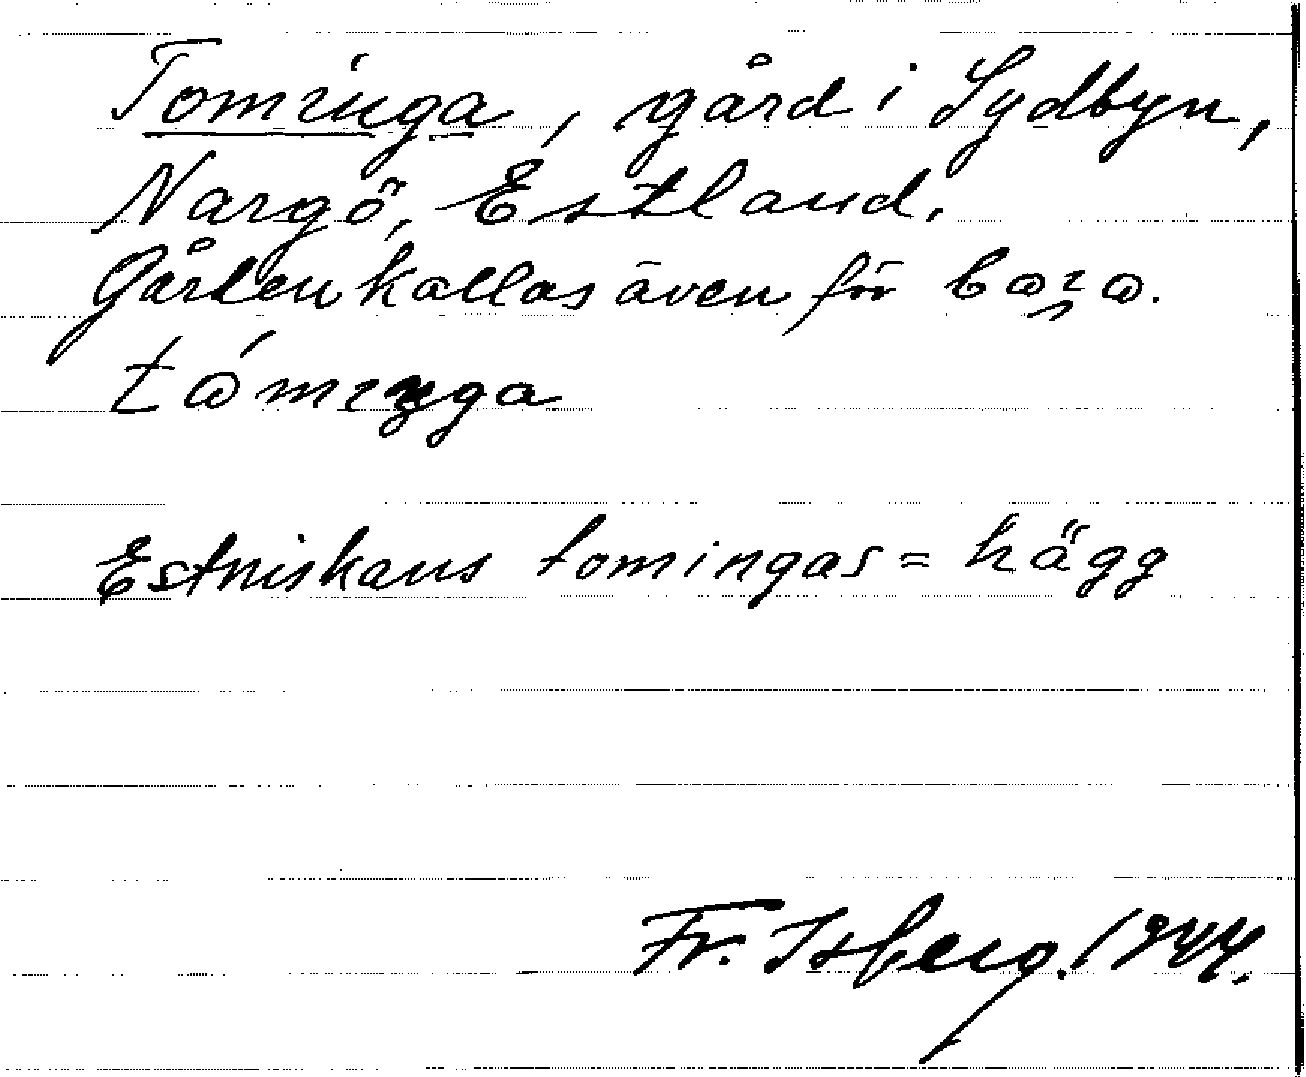 Tominga, gård i Sydbyn,
Nargö, Estland.
Gården kallas även för
Estniskans tomingas = hägg
Fr. Isberg. 1944.